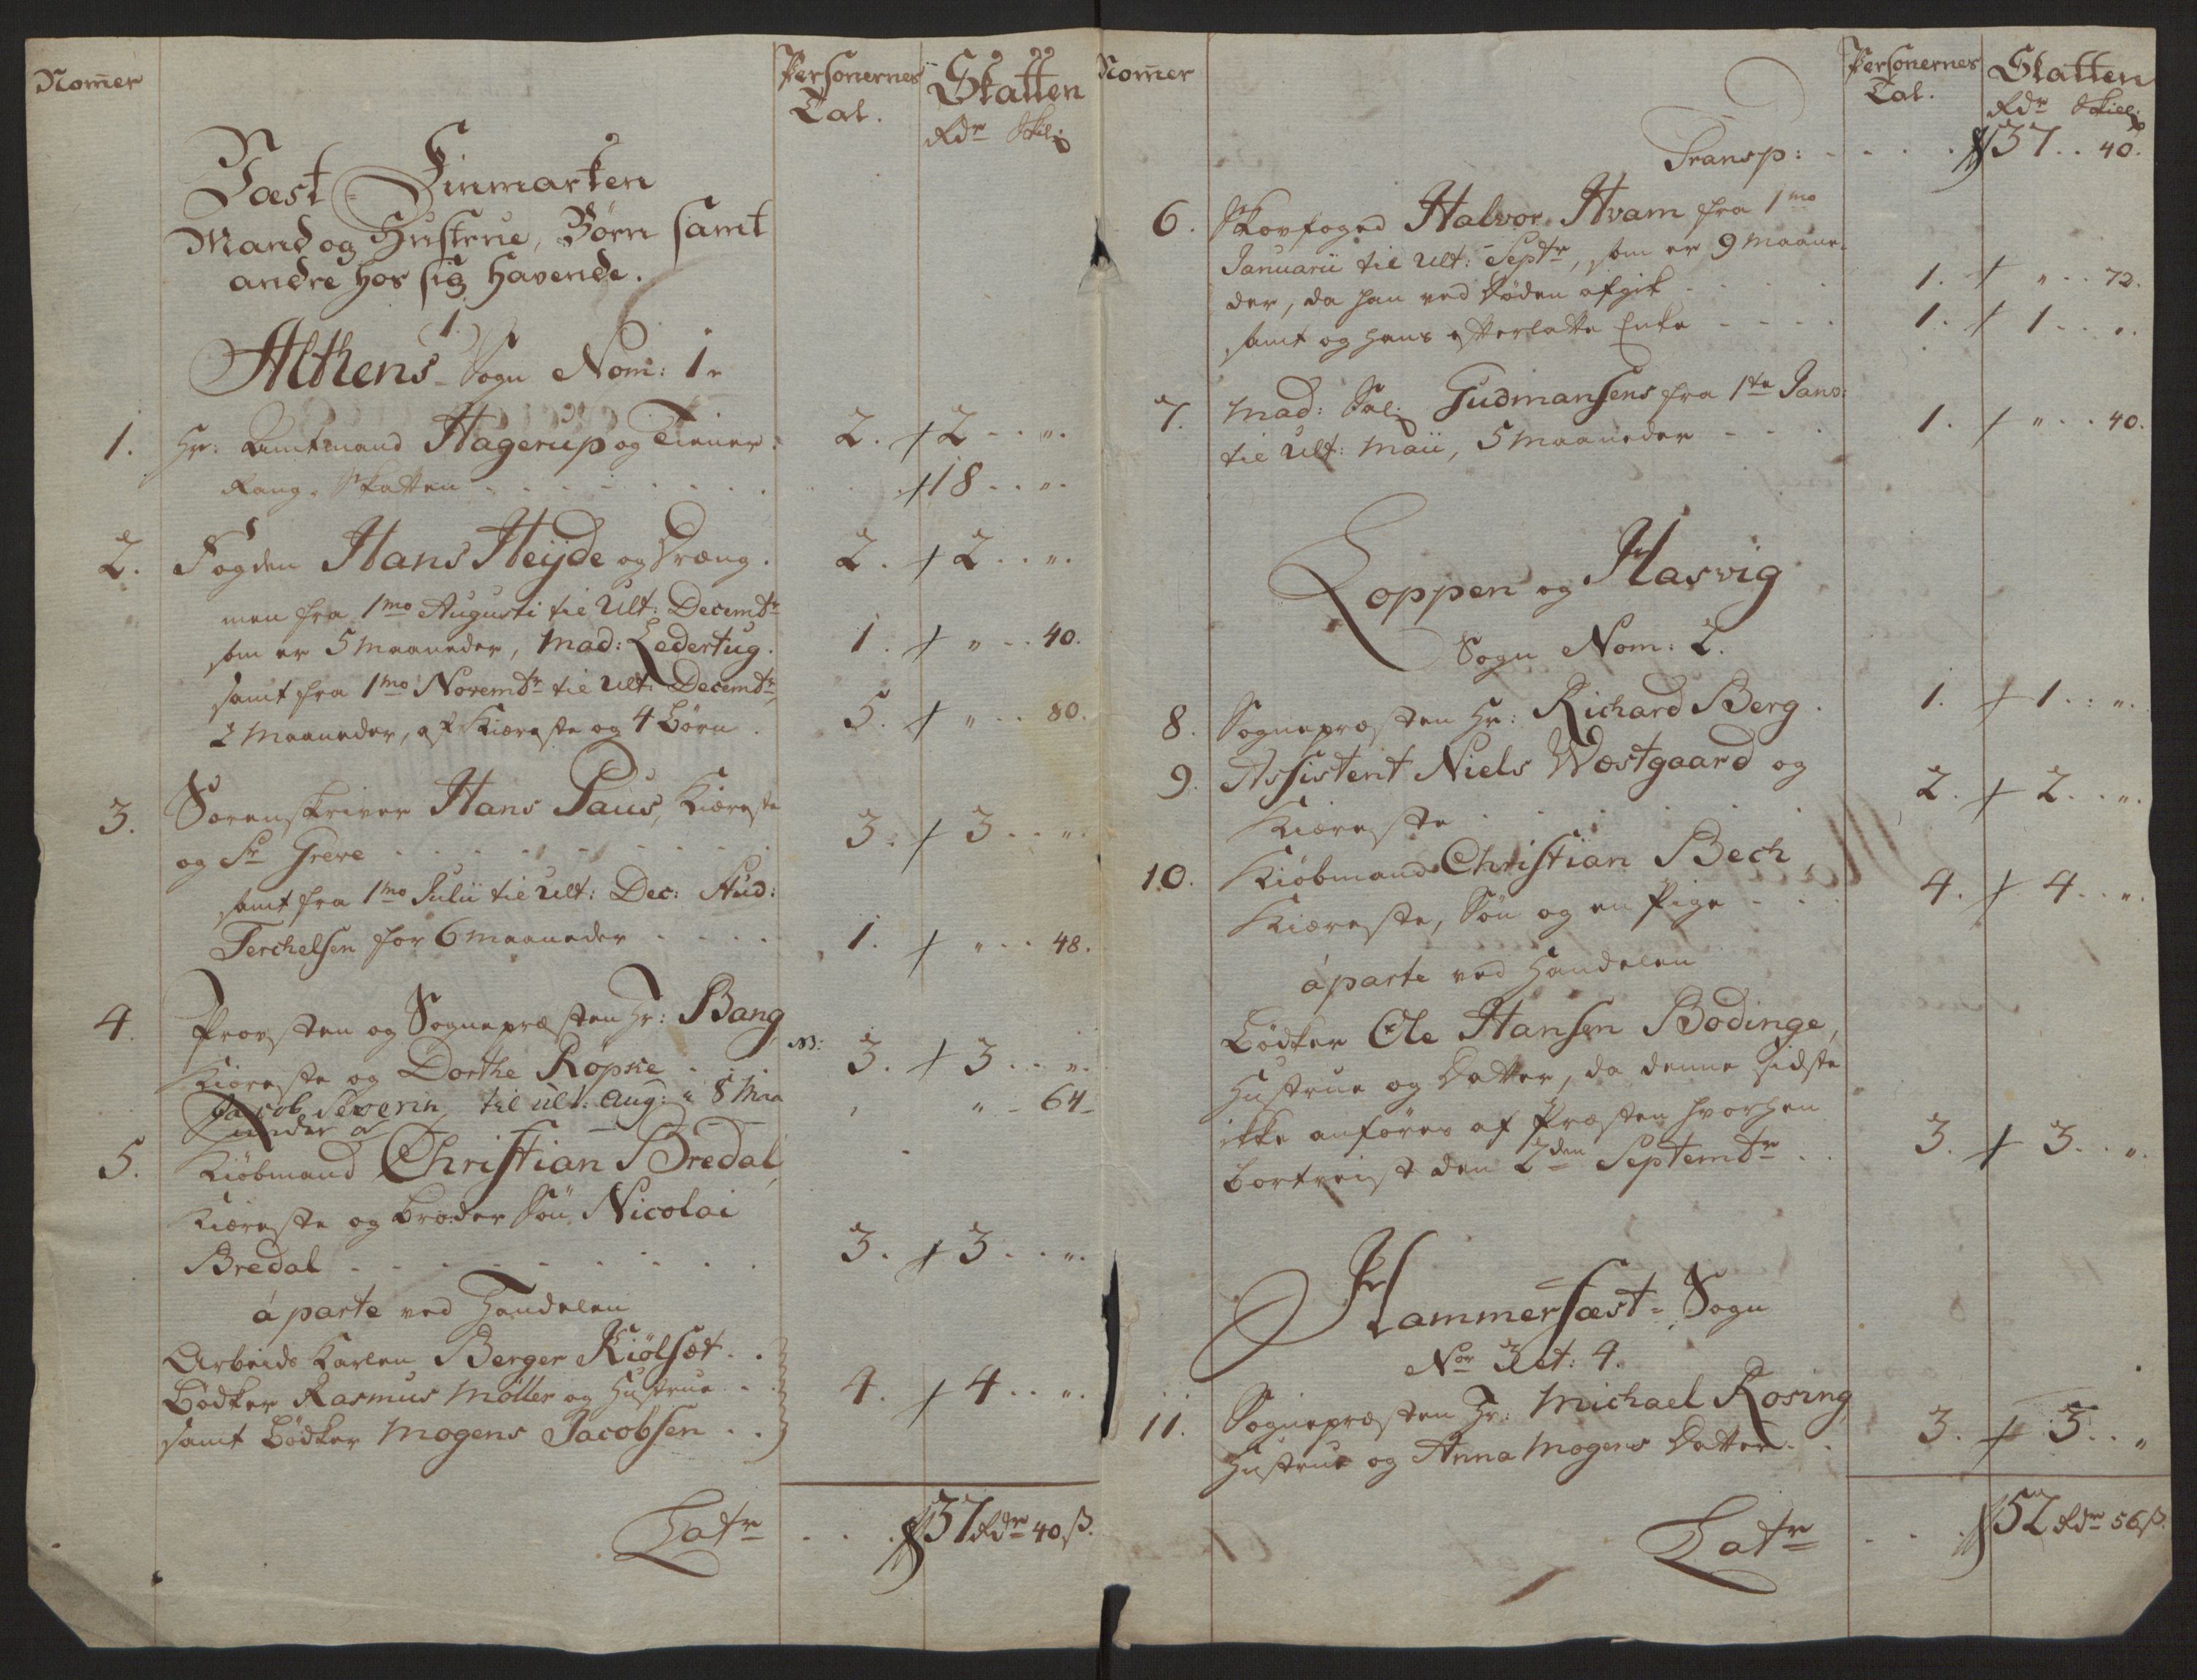 Nom̄er
Personernes
Tal.
Skatten
Rdr Skil:
Væst-Finmarken
Mand og Hustrue, Börn samt
andre hos sig havende.
1.
Althens Sogn Nom: 1.
1. Hr: Amtmand Hagerup og Tiener. 2. 2 - - „.
Rang-Skatten - - - - 18 - - „.
2. Fogden Hans Heyde og Dræng. 2. 2 - - „.
men fra 1mo Augusti til Ult: Decembr
som er 5 Maaneder, Mad: Ledertug. 1. „ - - 40.
samt fra 1mo Novembr til Ult: Decembr
2 Maaneder, af Kiæreste og 4 Börn. 5. „ - - 80.
3. Sorenskriver Hans Paus, Kiæreste
og Sr Greve - - - - 3. 3 - - „.
samt fra 1mo Julii til Ult: Dec: Stud:
Terchelsen for 6 Maaneder - - - 1. „ - - 48.
4. Provsten og Sognepræsten Hr: Bang
Kiæreste og Dorthe Röpke - - 3. 3 - - „.
Jacob Severin, til ult: Aug: 8 Mr
„ - 64 -
5. Kiöbmand Christian Bredal,
Kiæreste og Broder Sön Nicolai
Bredal - - - - 3. 3 - - „.
á parte ved Handelen
Arbeids Karlen Berger Kiölset - -
Bödker Rasmus Möller og Hustrue - - 4. 4 - - „.
samt Bödker Mogens Jacobsen - -
Latr - - - 37 Rdr 40 ß.
Nom̄er
Personernes
Tal.
Skatten
Rdr Skill:
Transp: - - - - 37 - - 40.
6. Skovfoged Halvor Hvam fra 1mo
Januarii til Ult: Septr, som er 9 Maane-
der, da han ved Döden afgik - - - 1. „ - - 72.
samt og hans efterladte Enke - - - 1. 1 - - „.
7. Mad: Sal: Gudmansens fra 1te Janv:
til Ult: Maii, 5 Maaneder - - - 1. „ - - 40.
Loppen og Hasvig
Sogn Nom: 2.
8. Sognepræsten Hr: Richard Berg. 1. 1 - - „.
9. Assistent Niels Wæstgaard og
Kiæreste - - - - 2. 2 - - „.
10. Kiöbmand Christian Bech,
Kiæreste, Sön og en Pige - - - 4. 4 - - „.
á parte ved Handelen
Bödker Ole Hansen Bodinge,
Hustrue og Datter, da denne sidste
ikke anföres af Præsten hvorhen
bortreist den 2den Septembr - - 3. 3 - - „.
Hammerfæst-Sogn
Nor 3 et: 4.
11. Sognepræsten Hr: Michael Rosing
Hustrue og Anna Mogens Datter - - 3. 3 - - „
Latr - - - 52 Rdr 56 ß.